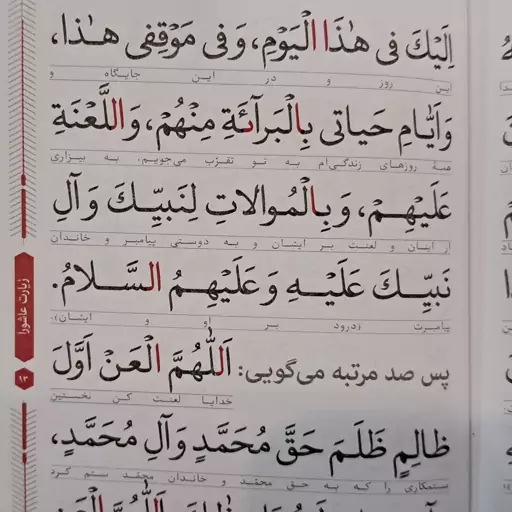 اِلَيْكَ فى هٰذَا الْيَوْمِ، وَ فى مَوْقِفى هٰذا،
این روز و در این جایگاه و
وَ اَيّامِ حَياتى بِالْبَرآئَةِ مِنْهُمْ، وَ اللَّعْنَةِ
همهٔ روزهای زندگی‌ام به تو تقرّب می‌جویم. به بیزاری
عَلَيْهِمْ، وَ بِالْمُوالاتِ لِنَبِيِّكَ وَ آلِ
از اینان و لعنت بر اینان و به دوستی پیامبر و خاندان
نَبِيِّكَ عَلَيْهِ وَ عَلَيْهِمُ السَّلامُ.
پیامبرت (درود بر او و اینان).
پس صد مرتبه می‌گویی: اَللّٰهُمَّ الْعَنْ اَوَّلَ
خدایا لعنت کن نخستین
ظالِمٍ ظَلَمَ حَقَّ مُحَمَّدٍ وَ آلِ مُحَمَّدٍ،
ستمکاری را که به حق محمّد و خاندان محمّد ستم کرد
زیارت عاشورا
۱۳